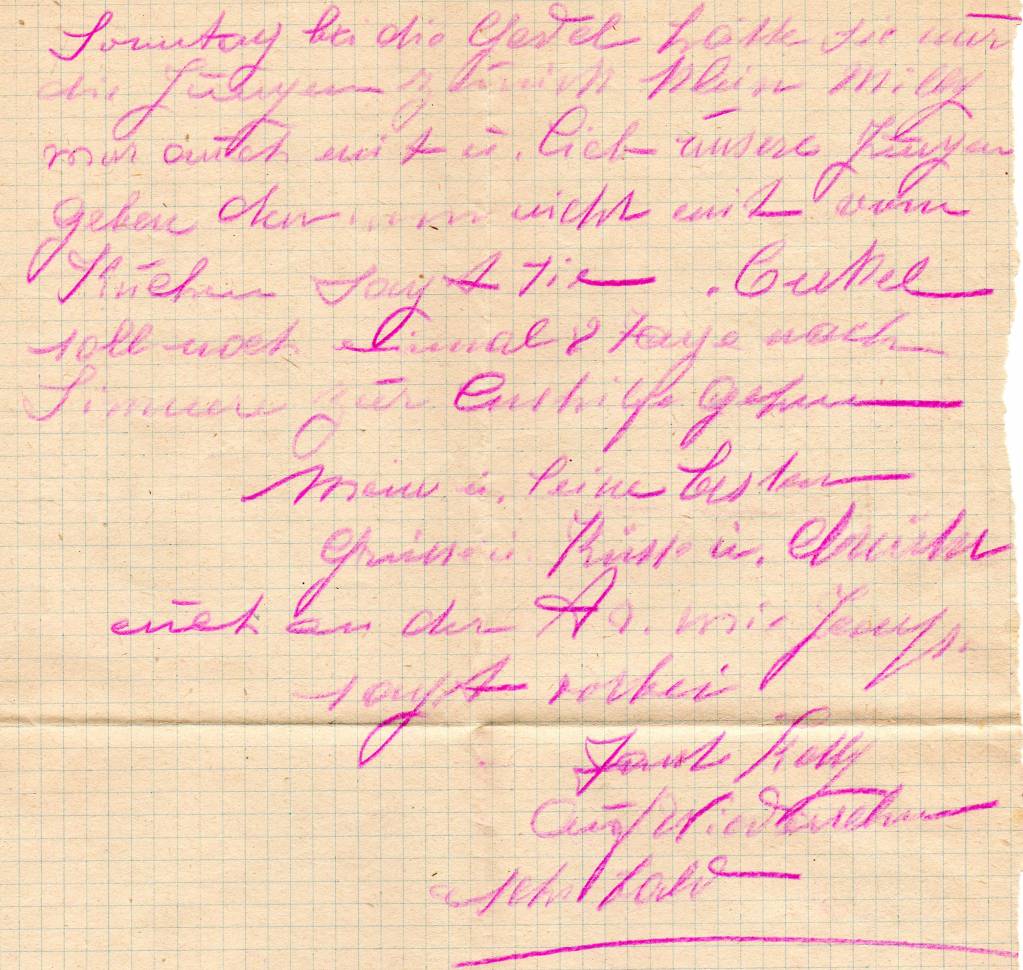 Sonntag bei die Gedel hätte sie nur
die Jungen zurück klein Willy
war auch mit u. lieb unsere Jungen
geben nicht mit vom
Kuchen sagt sie. Onkel
soll noch einmal 8 Tage nach
Simmern zur Aushilfe gehen
Mein u. Leine besten
Grüsse u. Küsse u.
euch an der wie
sagt vorbei
Tante Kätty
Auf Wiedersehn
sehr bald